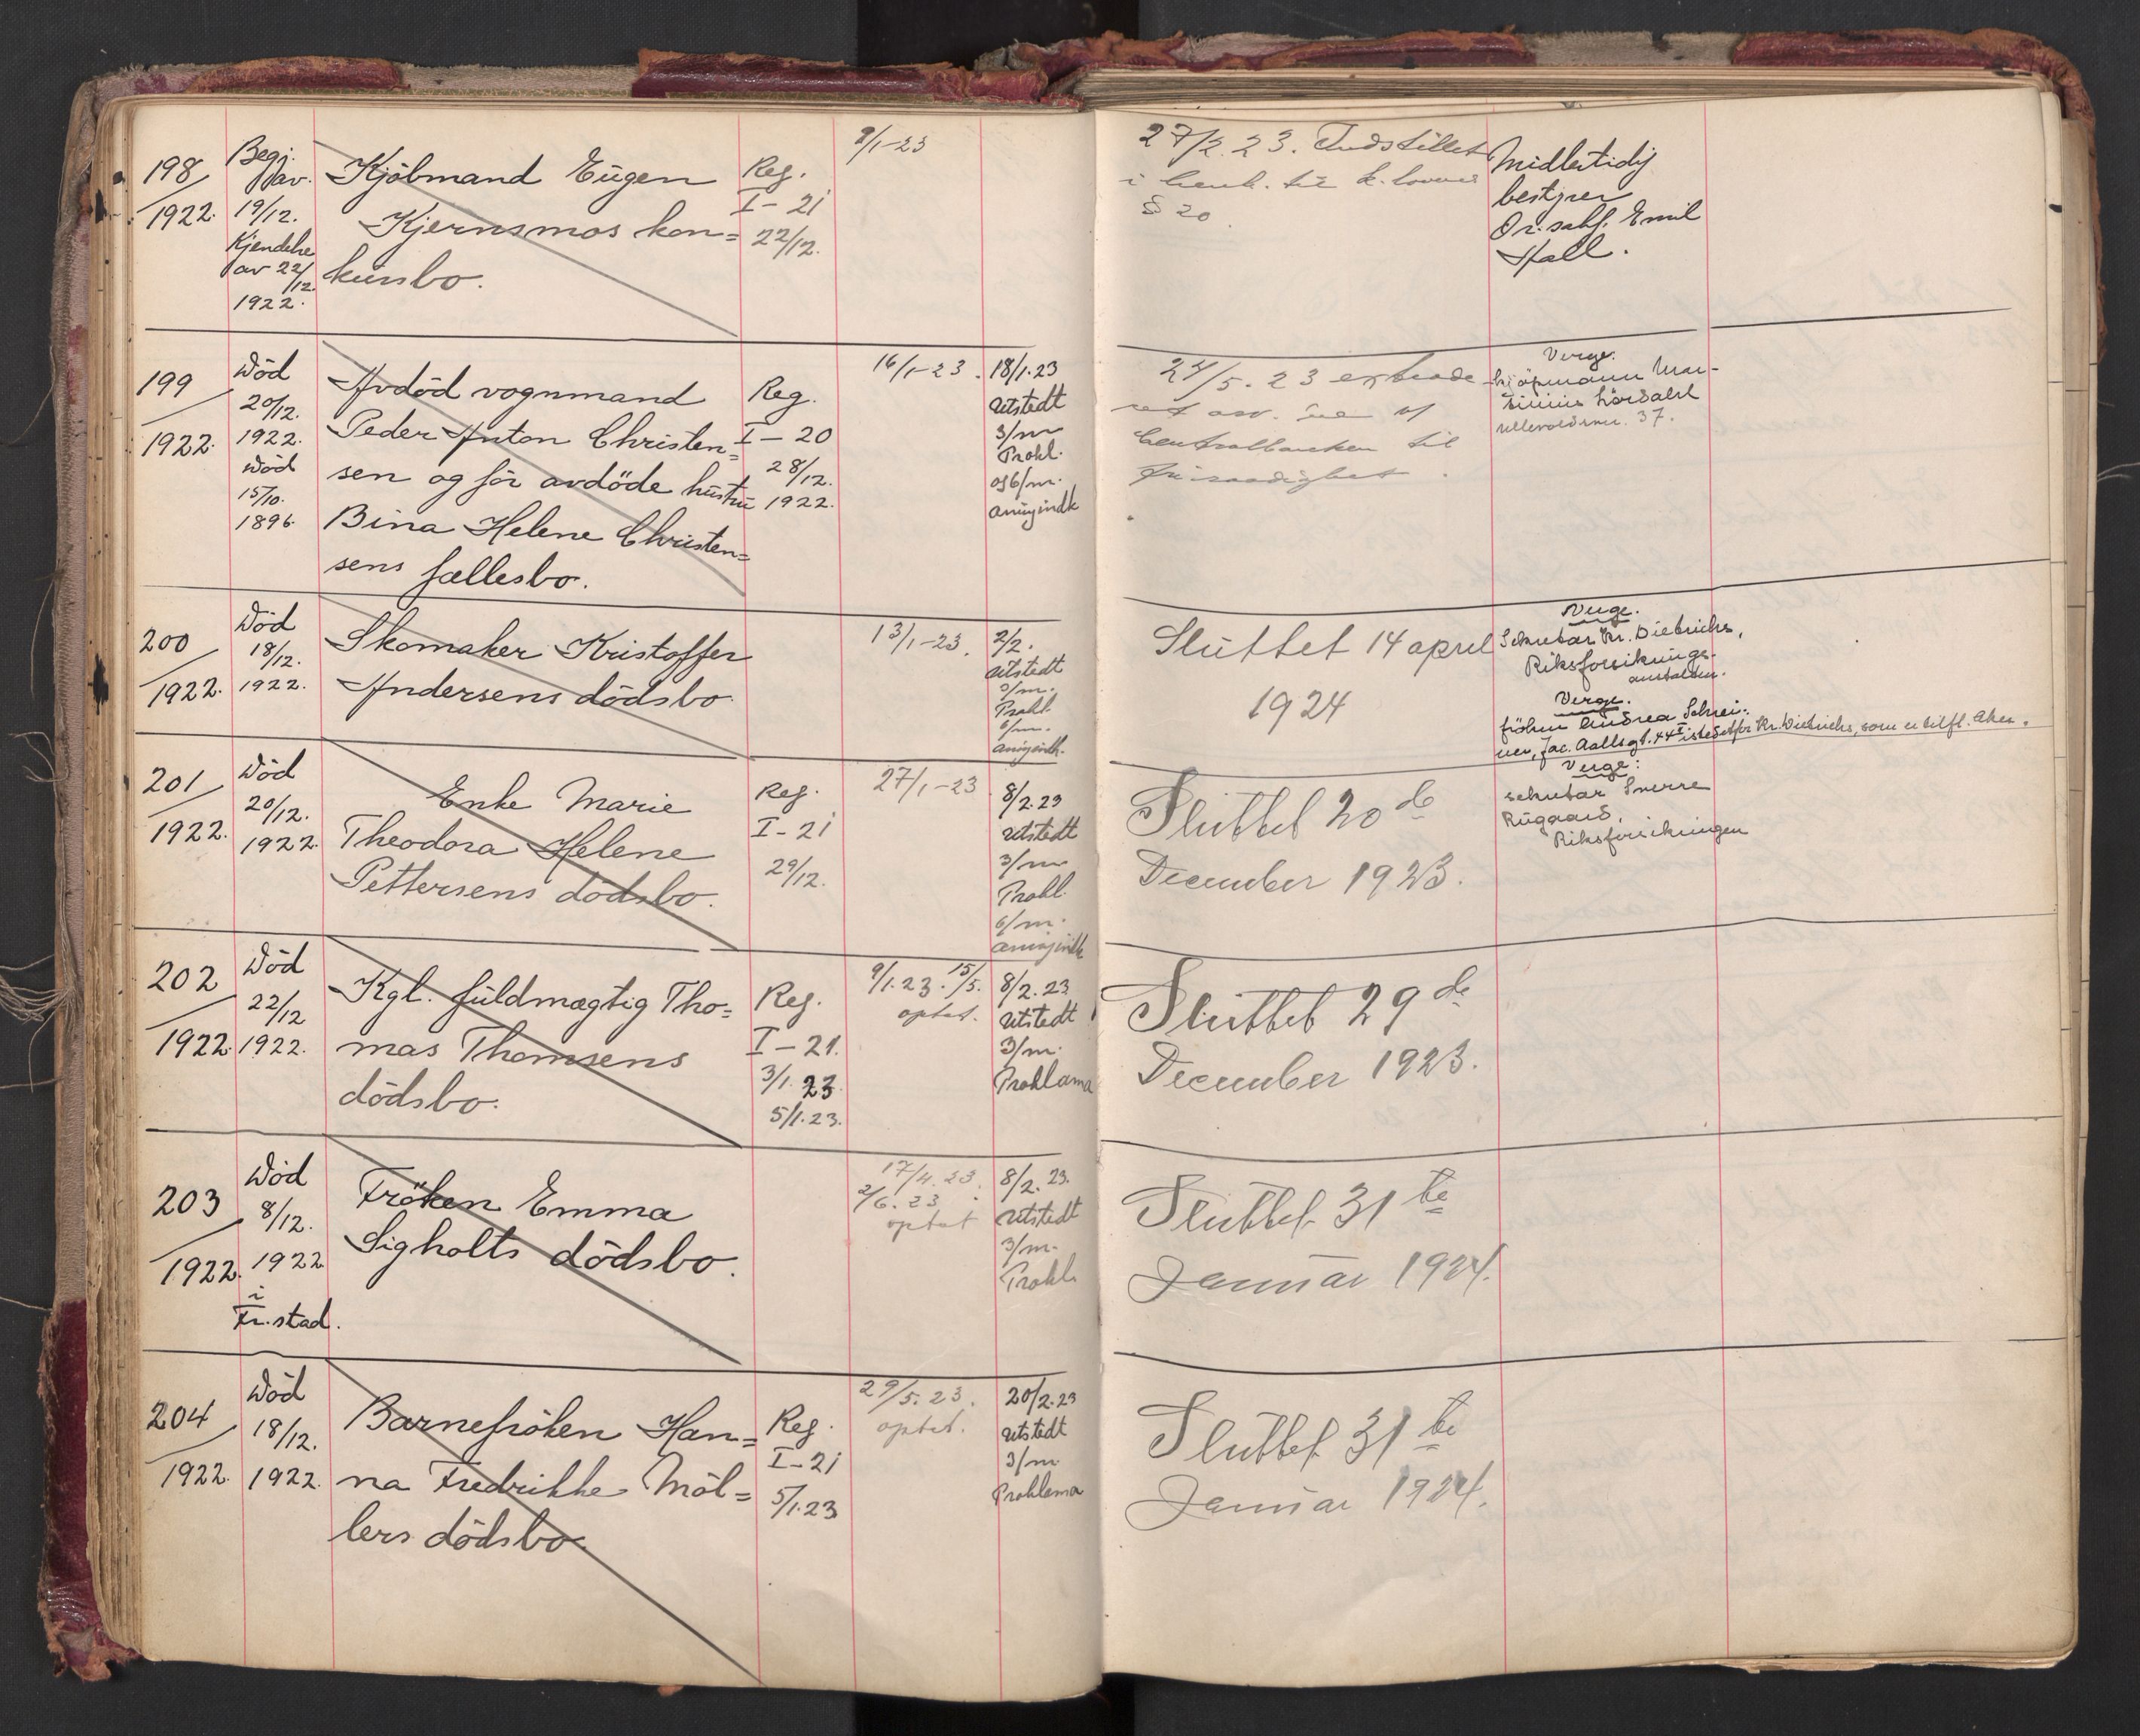 198
1922.
Begj.
av.
19/12.
Kjendelse
av 22/
12.
1922.
Kjöbmand Eugen
Kjernsmos kon=
kursbo.
Reg.
I-21
22/12.
9/1-23
27/2.23. Indstillet
i henh. til k. loven
§ 20.
Midlertidig
bestyrer
O.r.sakf. Emil
Hall.
199
1922.
Död
20/12.
1922.
Död
15/10.
1896.
Avdöd vognmand
Peder Anton Christen=
sen og för avdöde hustru
Bina Helene Christen=
sens fællesbo.
Reg.
I-20
28/12.
1922.
16/1-23.
18/1.23
utstedt
3/m
Prokl.
og 6/m.
24/5.23
Centralbanken til
Verge.
Kjöpmann Mar-
Ullevoldsvei. 37.
200
1922.
Död
18/12.
1922.
Skomaker Kristoffer
Andersens dödsbo.
13/1-23.
2/2.
utstedt
3/m.
Prokl.
6/m.
Sluttet 14 april
1924
Verge.
Sekretær Kr. Diebrichs,
Riksforsikrings-
anstalten.
Verge.
fröken Andrea Schrei-
ner, Jac. Aallsgt. 44 I istedetfor Kr. Diebrichs, som er tilfl. Aker.
201
1922.
Död
20/12.
1922.
Enke Marie
Theodora Helene
Pettersens dödsbo.
Reg.
I-21
29/12.
27/1-23
8/2.23
utstedt
3/m
Prokl.
6/m.
Sluttet 20 de
December 1923.
Verge:
sekretær Sverre
Rugaard,
Riksforsikringen
202
1922.
Död
22/12
1922.
Kgl. fuldmægtig Tho=
mas Thomsens
dödsbo.
Reg.
I-21.
3/1.23.
5/1.23.
9/1.23. 15/5.
optat.
8/2.23
utstedt
3/m.
Proklama
Sluttet 29 de
December 1923.
203
1922.
Död
8/12.
1922
i
Fr.stad.
Fröken Emma
Sigholts dödsbo.
17/4.23.
2/6.23.
optat
8/2.23.
utstedt
3/m.
Prokl.
Sluttet 31 te
Januar 1924.
204
1922.
Död
18/12.
1922.
Barnefröken Han=
na Fredrikke Möl=
lers dödsbo.
Reg.
I-21
5/1.23
29/5.23.
optat.
20/2.23
utstedt
3/m
Proklama
Sluttet 31 te
Januar 1924.